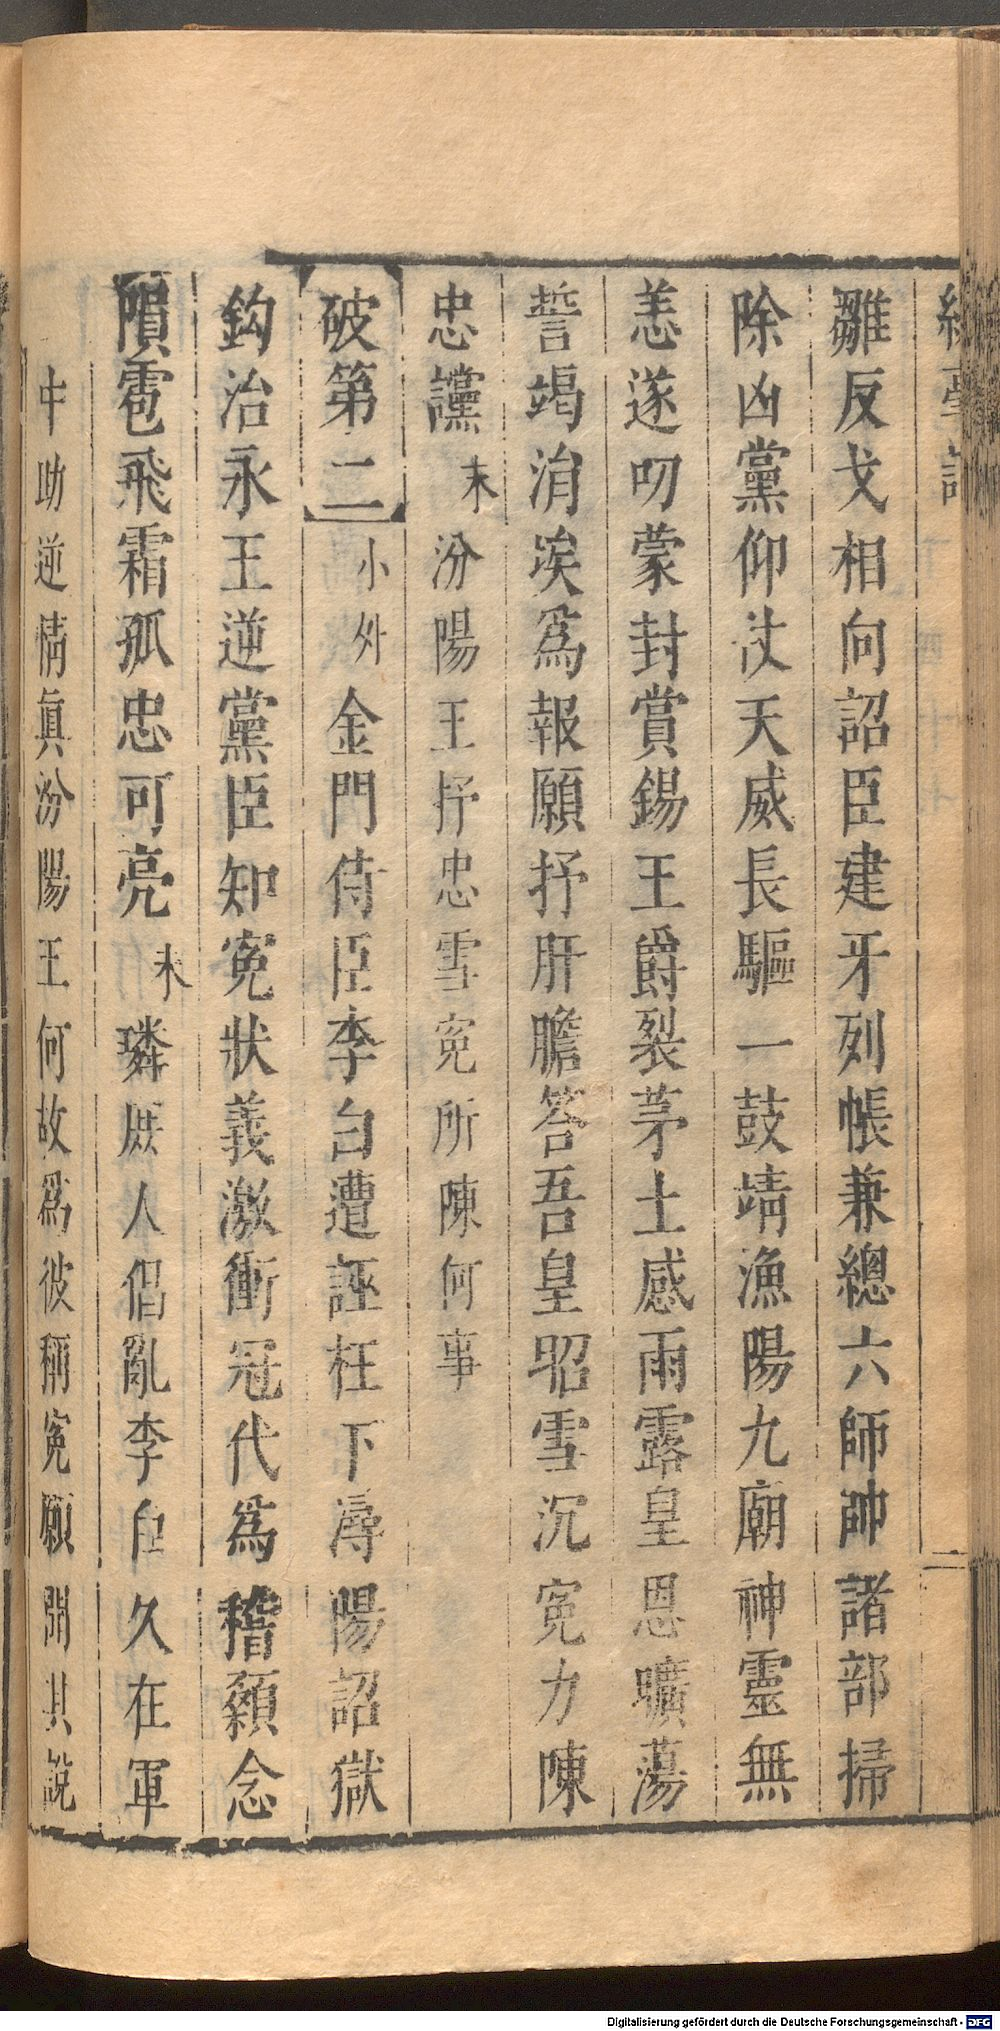 雛反戈相向詔臣建牙列帳兼總六師帥諸部掃
除凶黨仰仗天威長驅一鼓靖漁陽九廟神靈無
恙遂叨蒙封賞錫王爵裂茅土感雨露皇恩曠蕩
誓竭涓埃為報願抒肝膽答吾皇昭雪沉寃力陳
忠讜末汾陽王抒忠雪寃所陳何事
破第二小外金門侍臣李白遭誣枉下潯陽詔獄
鈎治永王逆黨臣知寃狀義激衝冠代爲稽顙念
隕雹飛霜孤忠可亮末璘庶人倡亂李白久在軍
中助逆情眞汾陽王何故爲彼稱寃願聞其說
二
Digitalisierung gefördert durch die Deutsche Forschungsgemeinschaft - DFG